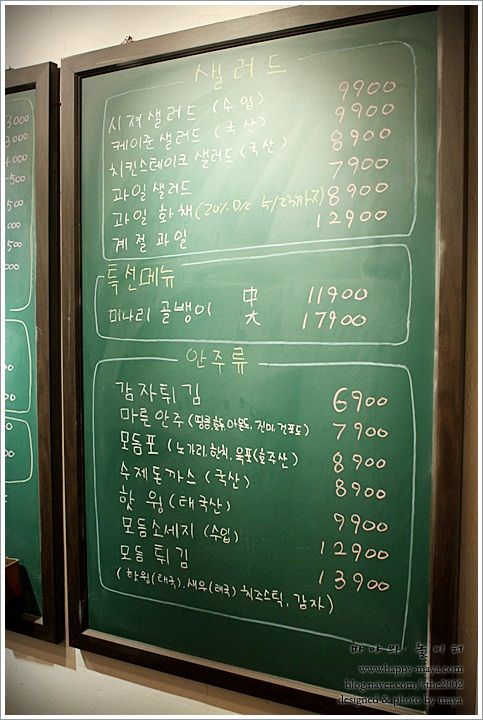 샐러드
시저샐러드 (수입) 9900
케이준샐러드 (국산) 9900
치킨스테이크 샐러드(국산) 8900
과일샐러드 7900
과일 화채(20% D/c 4/23까지) 8900
계절과일 12900
특선메뉴
미나리 골뱅이 中 11900
大 17900
안주류
감자튀김 6900
마른안주 (땅콩,호두,아몬드, 진미, 건포도) 7900
모듬포 (노가리,한치, 육포(호주산) 8900
수제돈까스 (국산) 8900
핫 윙 (태국산) 9900
모듬소세지 (수입) 12900
모듬 튀김 13900
( 핫윙(태국),새우(태국) 치즈스틱, 감자)
3000
마야의 놀이터
www.happy-maya.com
blog.naver.com/sthe2002
designed & photo by maya